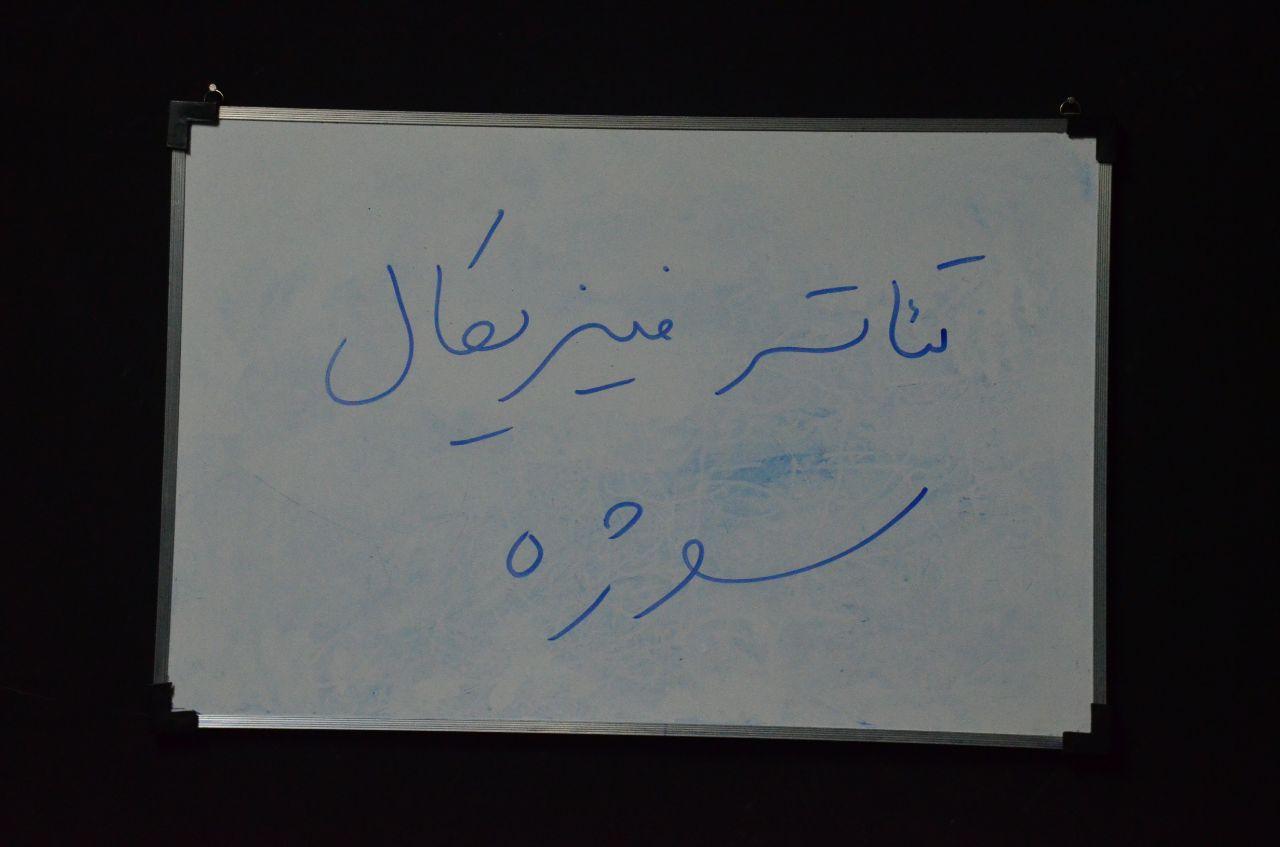 تئاتر فیزیکال
سوژه